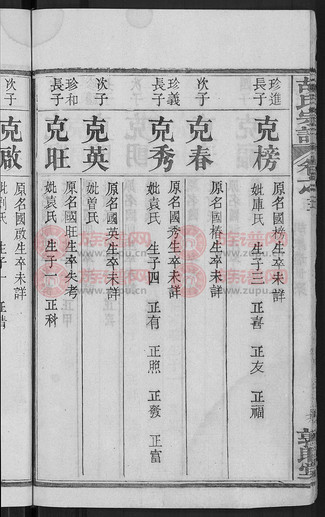 胡氏宗譜
珍進
長子
克榜
原名國榜生卒未詳
妣庫氏 生子三 正喜 正友 正福
次子
克春
原名國椿生卒未詳
珍義
長子
克秀
原名國秀生卒未詳
妣袁氏 生子四 正有 正照 正發 正富
次子
克英
原名國英生卒未詳
妣曽氏
珍和
長子
克旺
原名國旺生卒失考
妣袁氏 生子一 正科
次子
克啟
原名國啟生卒未詳
妣劉氏 生子一
族譜网
www.zupu.cn